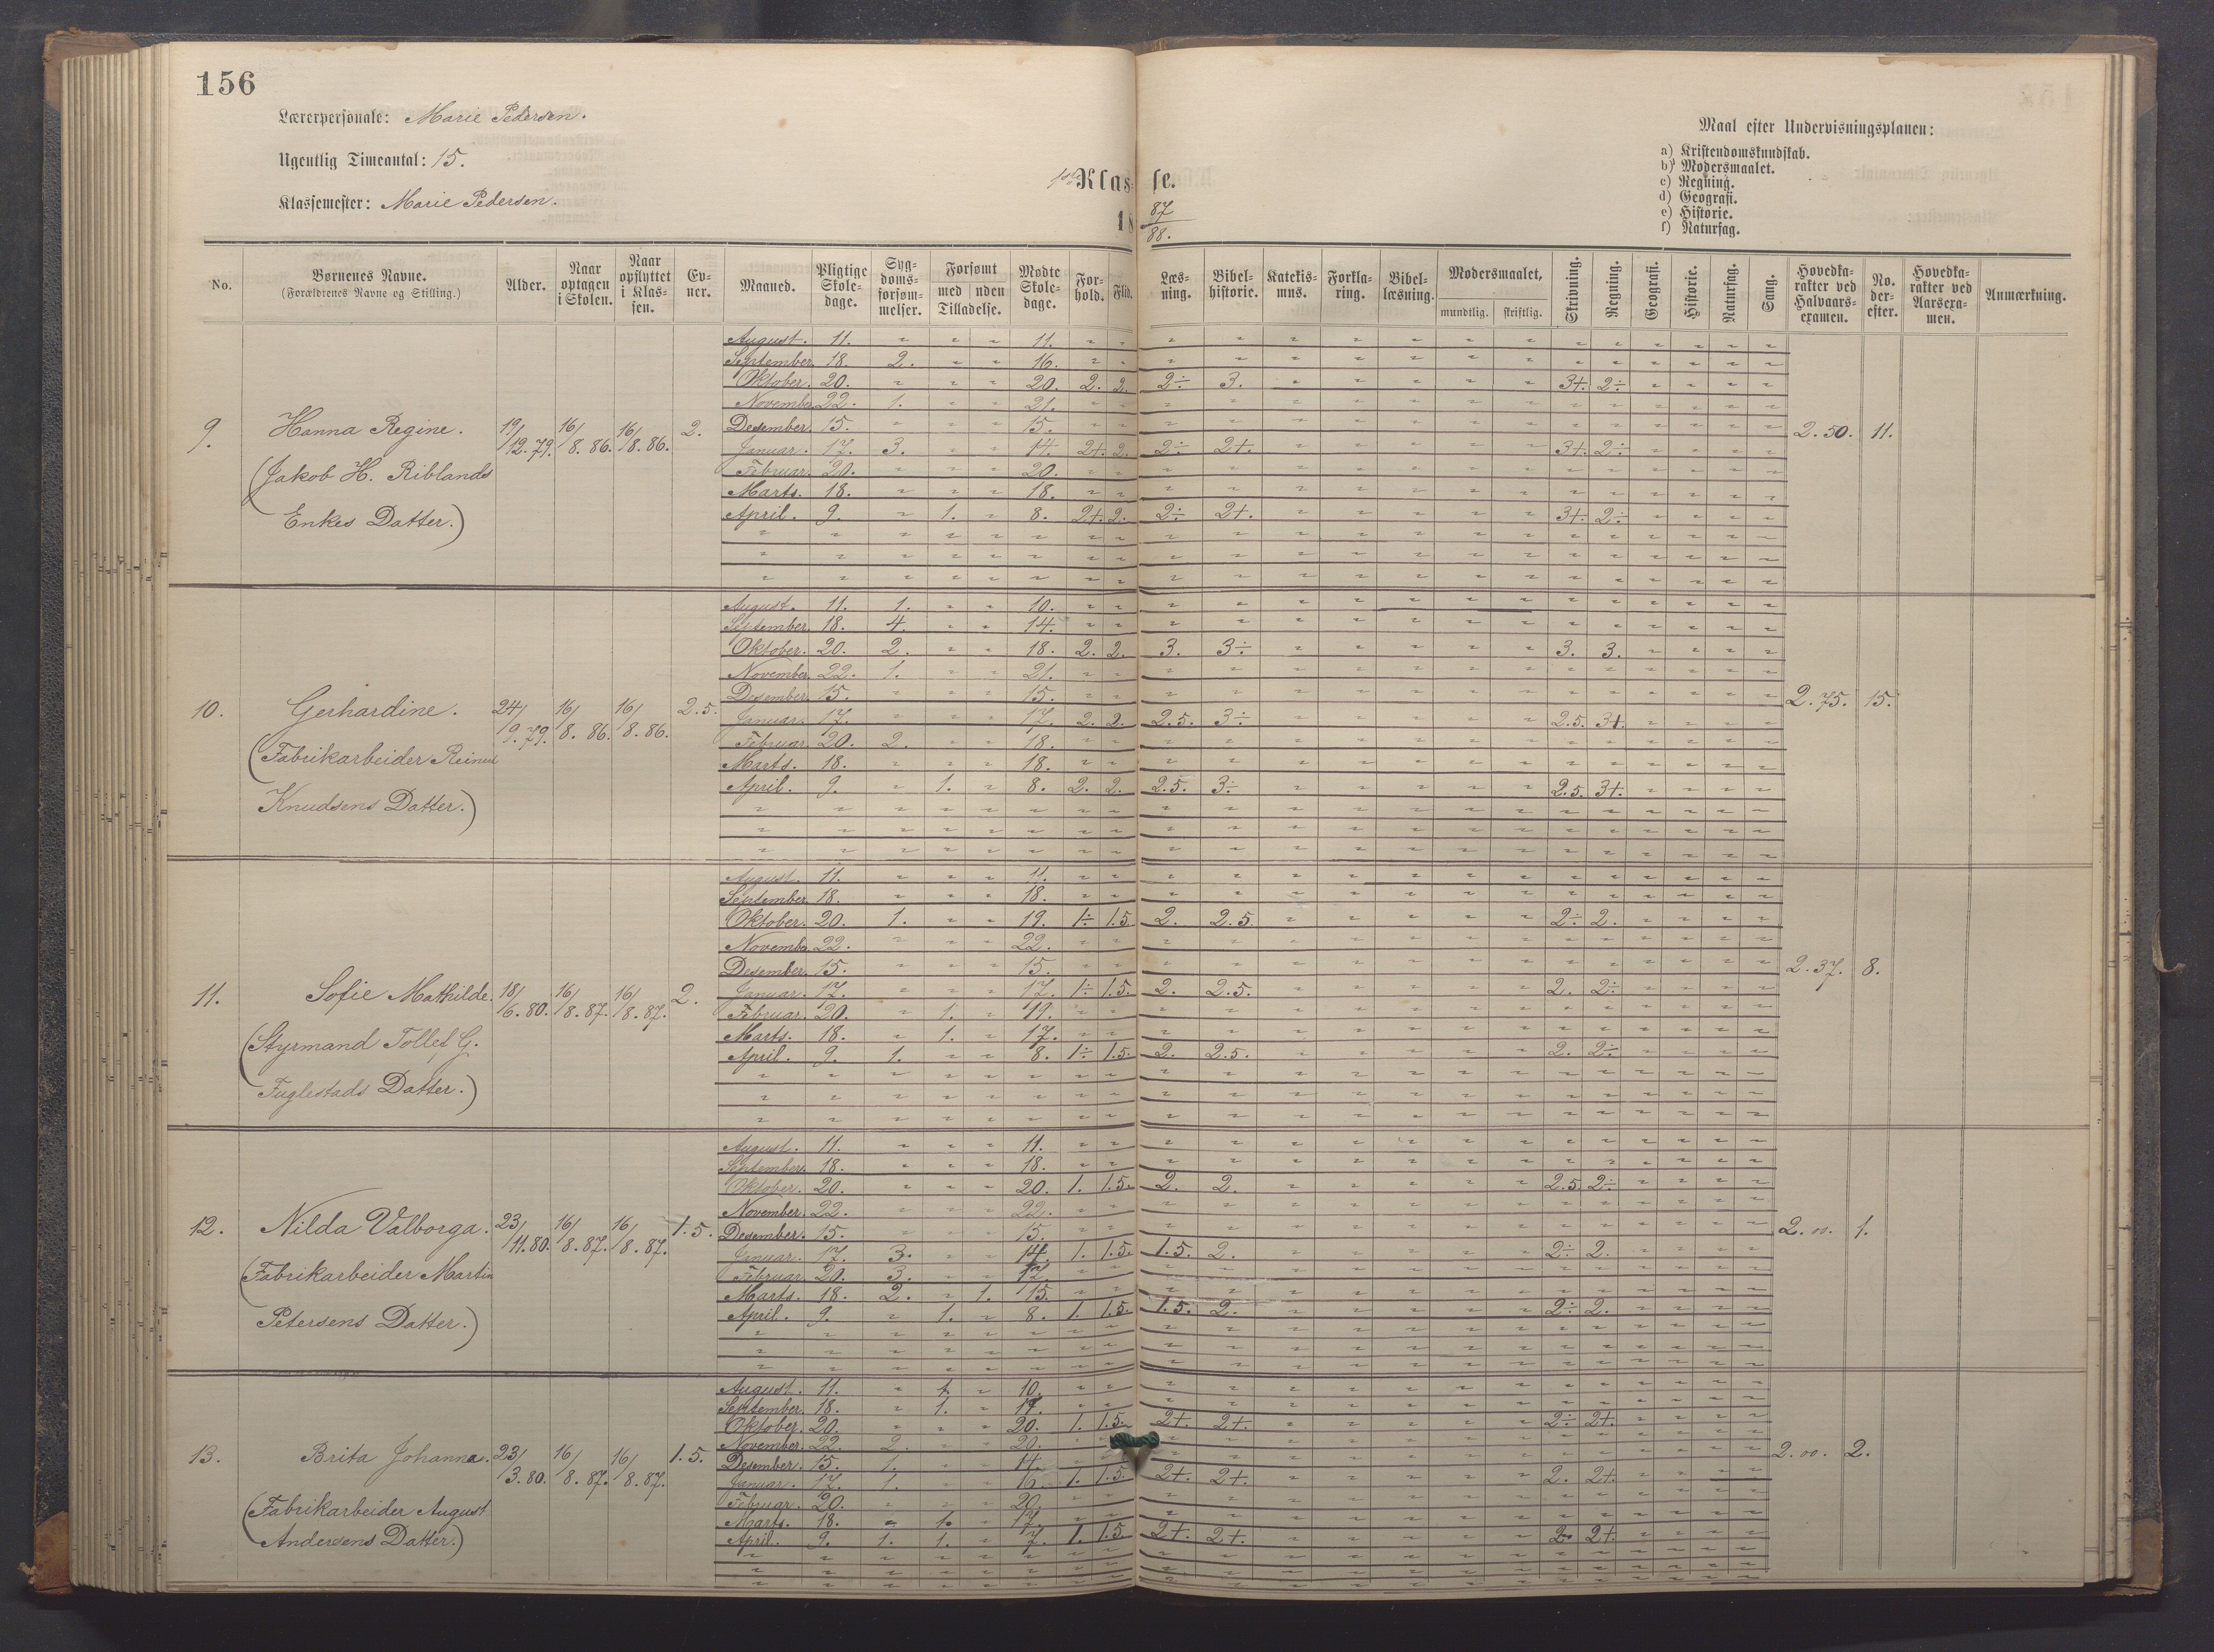 156
Lærerpersonale: Marie Pedersen.
Ugentlig Timeantal: 15.
Klassemester: Marie Pedersen.
1ste Klasse.
18 87/88.
Maal efter Undervisningsplanen:
a) Kristendomskundskab.
b) Modersmaalet.
c) Regning.
d) Geografi.
e) Historie.
f) Naturfag.
No. | Børnenes Navne. (Forældrenes Navne og Stilling.) | Alder. | Naar optagen i Skolen. | Naar opflyttet i Klassen. | Evner. | Maaned. | Pligtige Skoledage. | Sygdomsforsømmelser. | Forsømt med | uden Tilladelse. | Mødte Skoledage. | Forhold. | Flid. | Læsning. | Bibelhistorie. | Katekismus. | Forklaring. | Bibellæsning. | Modersmaalet, mundtlig. | skriftlig. | Skrivning. | Regning. | Geografi. | Historie. | Naturfag. | Sang. | Hovedkarakter ved Halvaarsexamen. | No. derefter. | Hovedkarakter ved Aarsexamen. | Anmærkning.
9. Hanna Regine. 19/12.79. 16/8.86. 16/8.86. 2. 2.50. 11.
(Jakob H. Riblands
Enkes Datter.)
August. 11. " " " 11. " "
September. 18. 2. " " 16. " "
Oktober. 20. " " " 20. 2. 2. 2÷ 3. " " " " " 3+. 2÷ " " " "
November. 22. 1. " " 21. " "
Desember. 15. " " " 15. " "
Januar. 17. 3. " " 14. 2+. 2. 2÷ 2+. " " " " " 3+. 2÷ " " " "
Februar. 20. " " " 20. " "
Marts. 18. " " " 18. " "
April. 9. " 1. " 8. 2+. 2. 2÷ 2+. " " " " " 3+. 2÷ " " " "
10. Gerhardine. 24/9.79. 16/8.86. 16/8.86. 2.5. 2.75. 15.
(Fabrikarbeider Reinert
Knudsens Datter.)
August. 11. 1. " " 10. " "
September. 18. 4. " " 14. " "
Oktober. 20. 2. " " 18. 2. 2. 3. 3÷ " " " " " 3. 3. " " " "
November. 22. 1. " " 21. " "
Desember. 15. " " " 15. " "
Januar. 17. " " " 17. 2. 2. 2.5. 3÷ " " " " " 2.5. 3+. " " " "
Februar. 20. 2. " " 18. " "
Marts. 18. " " " 18. " "
April. 9. " 1. " 8. 2. 2. 2.5. 3÷ " " " " " 2.5. 3+. " " " "
11. Sofie Mathilde. 18/6.80. 16/8.87. 16/8.87. 2. 2.37. 8.
(Styrmand Tollef G.
Fuglestads Datter.)
August. 11. " " " 11. " "
September. 18. " " " 18. " "
Oktober. 20. 1. " " 19. 1÷ 1.5. 2. 2.5. " " " " " 2÷ 2. " " " "
November. 22. " " " 22. " "
Desember. 15. " " " 15. " "
Januar. 17. " " " 17. 1÷ 1.5. 2. 2.5. " " " " " 2. 2÷ " " " "
Februar. 20. " 1. " 19. " "
Marts. 18. " 1. " 17. " "
April. 9. 1. " " 8. 1÷ 1.5. 2. 2.5. " " " " " 2. 2÷ " " " "
12. Nilda Valborga. 23/11.80. 16/8.87. 16/8.87. 1.5. 2.00. 1.
(Fabrikarbeider Martin
Petersens Datter.)
August. 11. " " " 11. " "
September. 18. " " " 18. " "
Oktober. 20. " " " 20. 1. 1.5. 2. 2. " " " " " 2.5. 2÷ " " " "
November. 22. " " " 22. " "
Desember. 15. " " " 15. " "
Januar. 17. 3. " " 14. 1. 1.5. 1.5. 2. " " " " " 2÷ 2. " " " "
Februar. 20. 3. " " 17. " "
Marts. 18. 2. " 1. 15. " "
April. 9. " 1. " 8. 1. 1.5. 1.5. 2. " " " " " 2÷ 2. " " " "
13. Brita Johanna. 23/3.80. 16/8.87. 16/8.87. 1.5. 2.00. 2.
(Fabrikarbeider August
Andersens Datter.)
August. 11. " 1. " 10. " "
September. 18. " 1. " 17. " "
Oktober. 20. " " " 20. 1. 1.5. 2+. 2+. " " " " " 2÷ 2+. " " " "
November. 22. 2. " " 20. " "
Desember. 15. 1. " " 14. " "
Januar. 17. 1. " " 16. 1. 1.5. 2+. 2+. " " " " " 2. 2+. " " " "
Februar. 20. " " " 20. " "
Marts. 18. " 1. " 17. " "
April. 9. 1. 1. " 7. 1. 1.5. 2+. 2+. " " " " " 2. 2+. " " " "